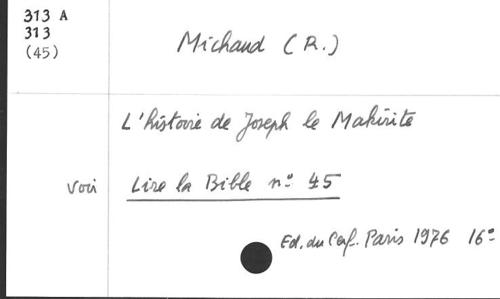 313 A
313
(45)
Michaud (R.)
L'histoire de Joseph le Makirite
voir Lire la Bible nº 45
Ed. du Cerf. Paris 1976 16º